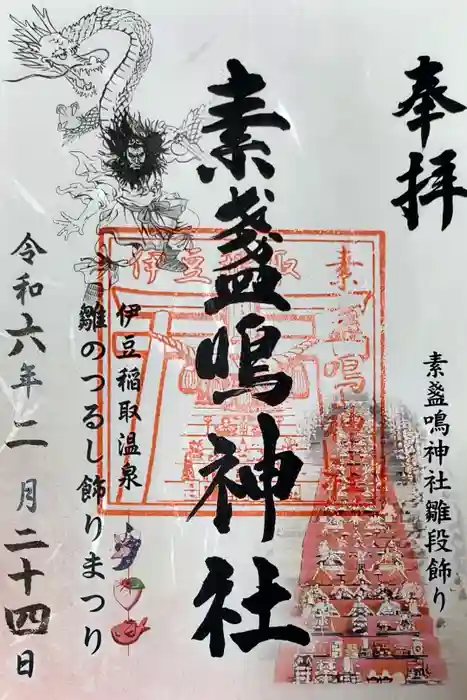 奉拝
素盞鳴神社
素盞鳴神社雛段飾り
伊豆稲取
素盞鳴神社
伊豆稲取温泉
雛のつるし飾りまつり
令和六年二月二十四日